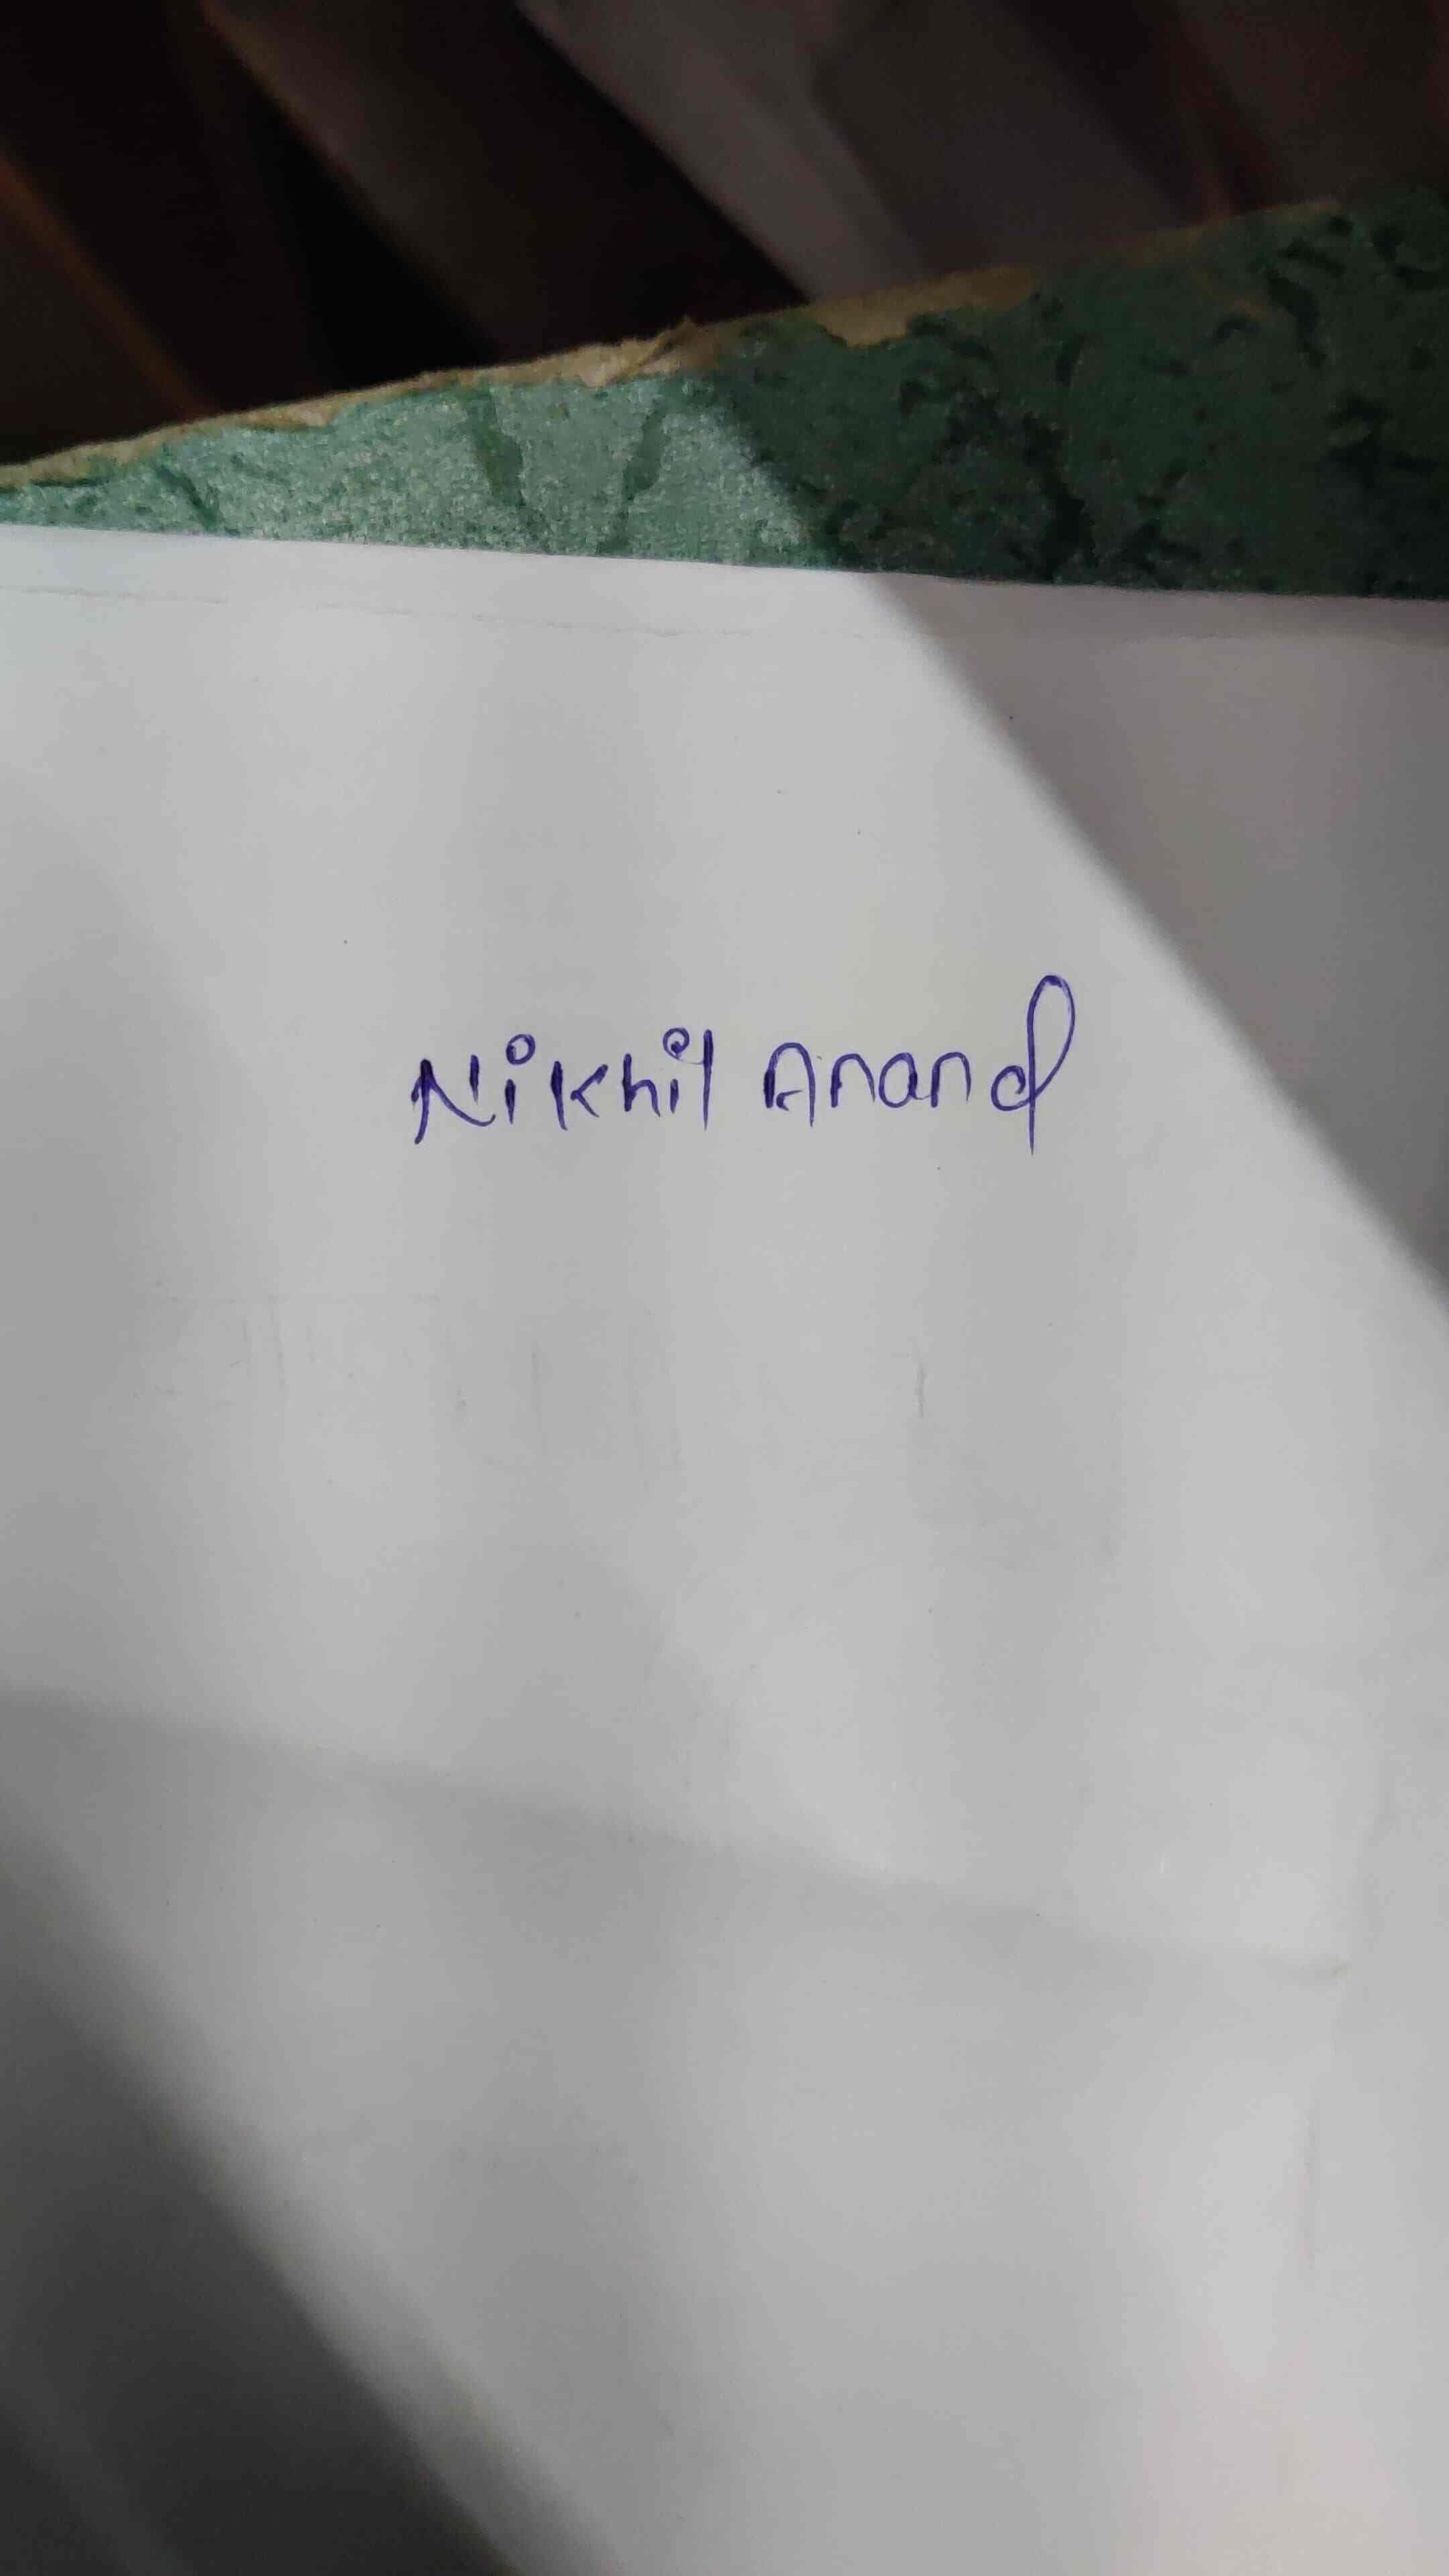 Nikhil Anand